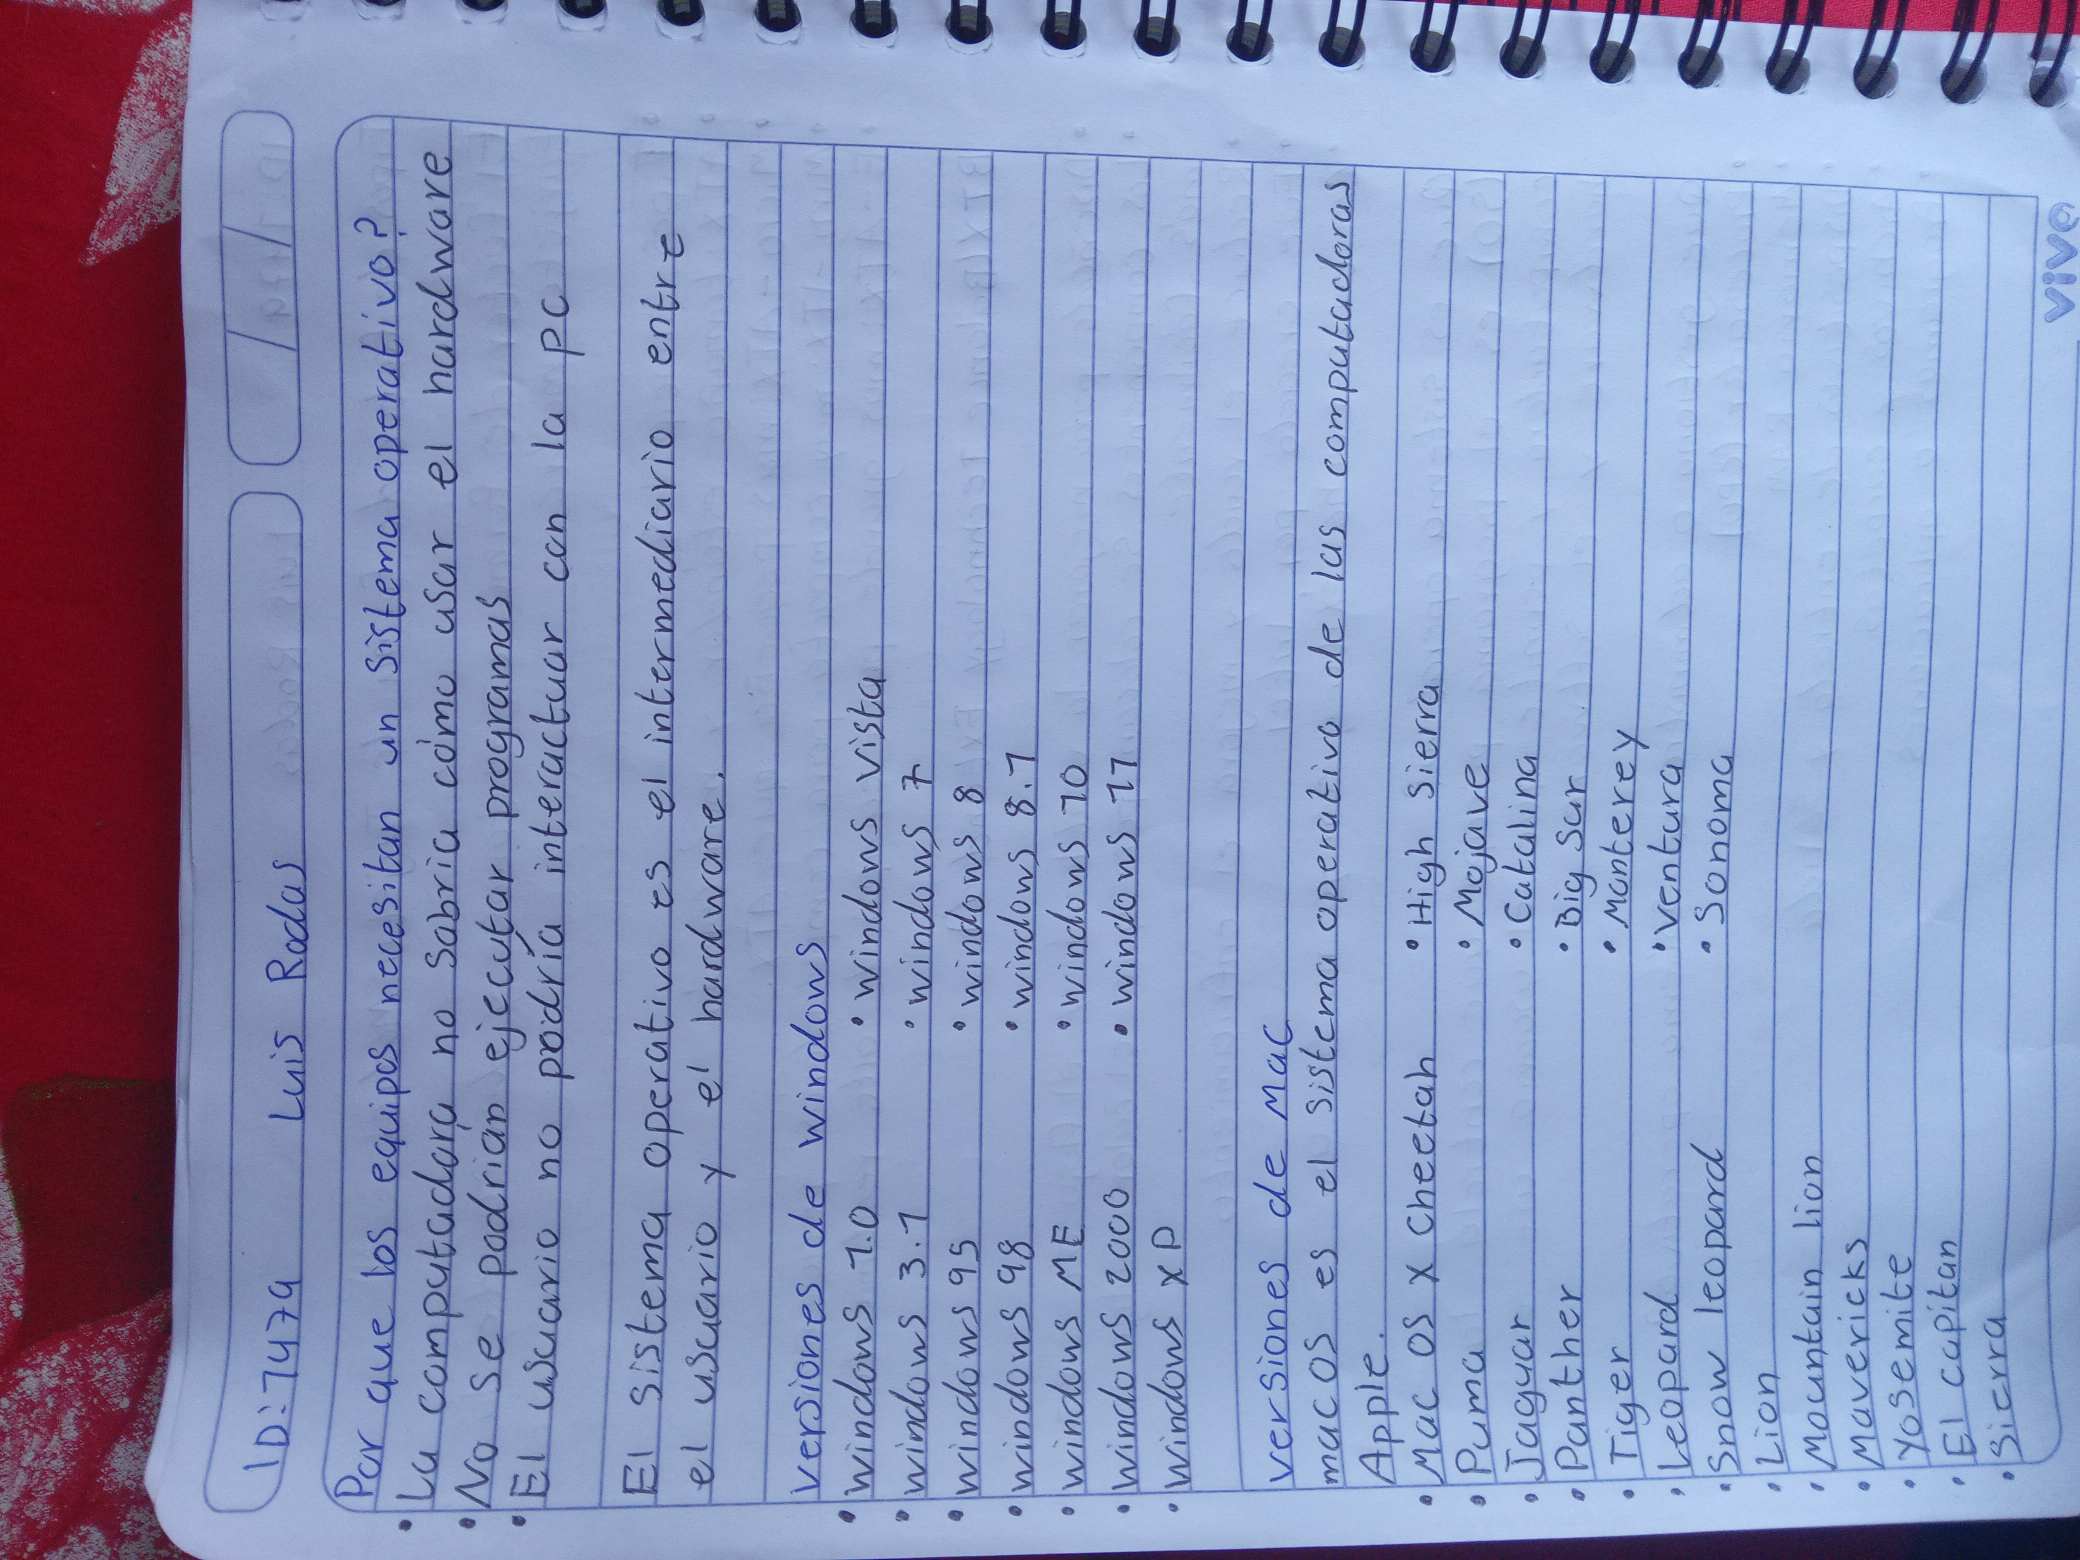 ID: 7479 Luis Rodas
Por que los equipos necesitan un sistema operativo?
• La computadora no sabria cómo usar el hardware
• No se podrían ejecutar programas
• El usuario no podría interactuar con la pc
El sistema operativo es el intermediario entre
el usuario y el hardware.
versiones de windows
• windows 1.0 • windows vista
• windows 3.1 • windows 7
• windows 95 • windows 8
• windows 98 • windows 8.1
• windows ME • windows 10
• windows 2000 • windows 11
• windows XP
versiones de Mac
mac OS es el sistema operativo de las computadoras
Apple.
• Mac OS X Cheetah • High Sierra
• Puma • Mojave
• Jaguar • Catalina
• Panther • Big Sur
• Tiger • Monterey
• Leopard • Ventura
• Snow leopard • Sonoma
• Lion
• Mountain lion
• Mavericks
• Yosemite
• El capitan
• Sierra
viva